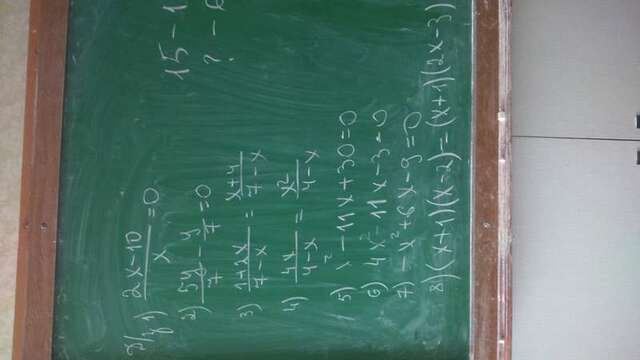 1) (2x-10)/x = 0
2) 5y/7 - y/7 = 0
3) (1+2x)/(7-x) = (x+4)/(7-x)
4) 4x/(4-x) = x²/(4-x)
5) x² - 11x + 30 = 0
6) 4x² - 11x - 3 = 0
7) -x² + 6x - 9 = 0
8) (x+1)(x-2) = (x+1)(2x-3)
15 - 1
? -